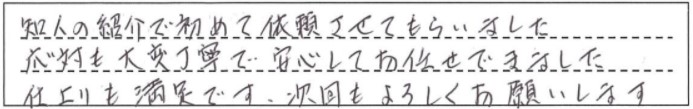 知人の紹介で初めて依頼させてもらいました
応対も大変丁寧で安心してお任せできました
仕上りも満足です、次回もよろしくお願いします